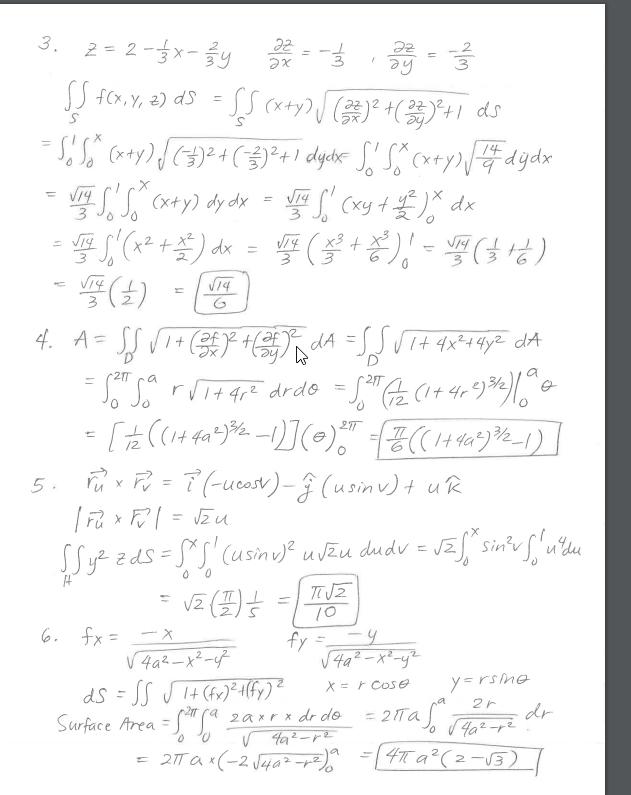 3. z = 2 - 1/3 x - 2/3 y   ∂z/∂x = -1/3 , ∂z/∂y = -2/3
∬_S f(x, y, z) dS = ∬_S (x+y) √((∂z/∂x)² + (∂z/∂y)² + 1) ds
= ∫₀¹ ∫₀ˣ (x+y) √((-1/3)² + (-2/3)² + 1) dydx = ∫₀¹ ∫₀ˣ (x+y) √(14/9) dydx
= √14/3 ∫₀¹ ∫₀ˣ (x+y) dy dx = √14/3 ∫₀¹ (xy + y²/2)₀ˣ dx
= √14/3 ∫₀¹ (x² + x²/2) dx = √14/3 (x³/3 + x³/6)₀¹ = √14/3 (1/3 + 1/6)
= √14/3 (1/2) = √14/6
4. A = ∬_D √(1 + (∂f/∂x)² + (∂f/∂y)²) dA = ∬_D √(1 + 4x² + 4y²) dA
= ∫₀^2π ∫₀^a r √(1 + 4r²) dr dθ = ∫₀^2π (1/12 (1 + 4r²)^3/2)|₀^a θ
= [1/12 ((1 + 4a²)^3/2 - 1)] (θ)₀^2π = π/6 ((1 + 4a²)^3/2 - 1)
5. r⃗u × r⃗v = i⃗ (-ucosv) - ĵ (u sin v) + u k̂
|r⃗u × r⃗v| = √2 u
∬_H y² z dS = ∫₀^x ∫₀¹ (u sin v)² u √2 u du dv = √2 ∫₀^x sin² v ∫₀¹ u⁴ du
= √2 (π/2) 1/5 = π√2/10
6. fx = -x/√(4a² - x² - y²)   fy = -y/√(4a² - x² - y²)
dS = ∬ √(1 + (fx)² + (fy)²)   x = r cosθ   y = r sinθ
Surface Area = ∫₀^2π ∫₀^a 2a x r x dr dθ/√(4a² - r²) = 2πa ∫₀^a 2r/√(4a² - r²) dr
= 2πa x (-2 √(4a² - r²))₀^a = 4πa² (2 - √3)